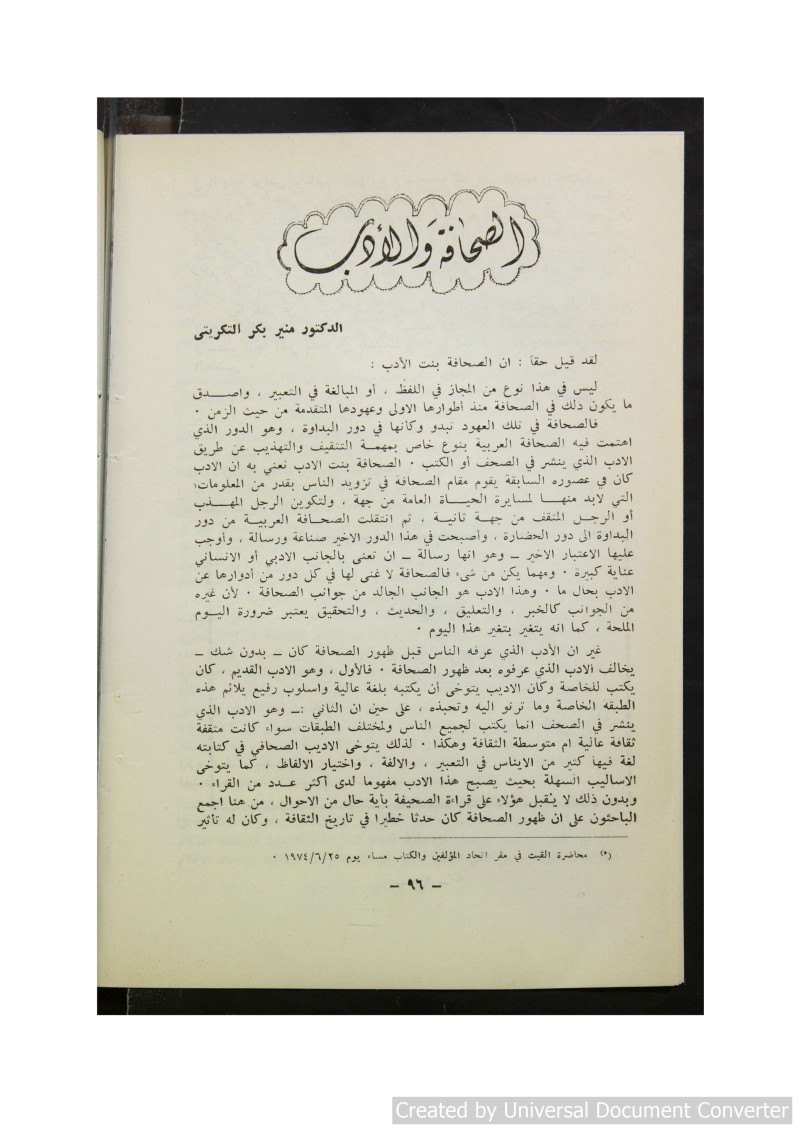 الصحافة والأدب
الدكتور منير بكر التكريتي
لقد قيل حقا : ان الصحافة بنت الأدب :
ليس في هذا نوع من المجاز في اللفظ ، أو المبالغة في التعبير ، واصـــدق
ما يكون ذلك في الصحافة منذ أطوارها الاولى وعهودها المتقدمة من حيث الزمن ٠
فالصحافة في تلك العهود تبدو وكأنها في دور البداوة ، وهو الدور الذي
اهتمت فيه الصحافة العربية بنوع خاص بمهمـة التثقيف والتهذيب عن طريق
الادب الذي ينشر في الصحف أو الكتب ٠ الصحافة بنت الادب نعني به ان الادب
كان في عصوره السابقة يقوم مقام الصحافة في تزويد الناس بقدر من المعلومات،
التي لابد منهـــا لمسايرة الحيـــاة العامة من جهة ، ولتكوين الرجل المهــذب
أو الرجــل المثقف من جهــة ثانيــة ، ثم انتقلت الصحــافة العربيــة من دور
البداوة الى دور الحضارة ، وأصبحت في هذا الدور الاخير صناعة ورسالة ، وأوجب
عليها الاعتبار الاخير ــ وهو انها رسالة ــ ان تعنى بالجانب الادبي أو الانساني
عناية كبيرة ٠ ومهما يكن من شيء فالصحافة لا غنى لها في كل دور من أدوارها عن
الادب بحال ما ٠ وهذا الادب هو الجانب الخالد من جوانب الصحافة ٠ لأن غيره
من الجوانب كالخبر ، والتعليق ، والحديث ، والتحقيق يعتبر ضرورة اليــوم
الملحة ، كما انه يتغير بتغير هذا اليوم ٠
غير ان الأدب الذي عرفه الناس قبل ظهور الصحافة كان ــ بدون شك ــ
يخالف الادب الذي عرفوه بعد ظهور الصحافة ٠ فالأول ، وهو الادب القديم ، كان
يكتب للخاصة وكان الاديب يتوخى أن يكتبه بلغة عالية واسلوب رفيع يلائم هذه
الطبقه الخاصة وما ترنو اليه وتحبذه ، على حين ان الثاني :ــ وهو الادب الذي
ينشر في الصحف انما يكتب لجميع الناس ولمختلف الطبقات سواء كانت مثقفة
ثقافة عالية ام متوسطة الثقافة وهكذا ٠ لذلك يتوخى الاديب الصحافي في كتابته
لغة فيها كثير من الايناس في التعبير ، والالفة ، واختيار الالفاظ ، كما يتوخى
الاساليب السهلة بحيث يصبح هذا الادب مفهوما لدى اكثر عــدد من القراء ٠
وبدون ذلك لا يُقبل هؤلاء على قراءة الصحيفة بأية حال من الاحوال ، من هنا اجمع
الباحثون على ان ظهور الصحافة كان حدثا خطيرا في تاريخ الثقافة ، وكان له تأثير
(*) محاضرة القيت في مقر اتحاد المؤلفين والكتاب مساء يوم ١٩٧٤/٦/٢٥ ٠
– ٩٦ –
Created by Universal Document Converter